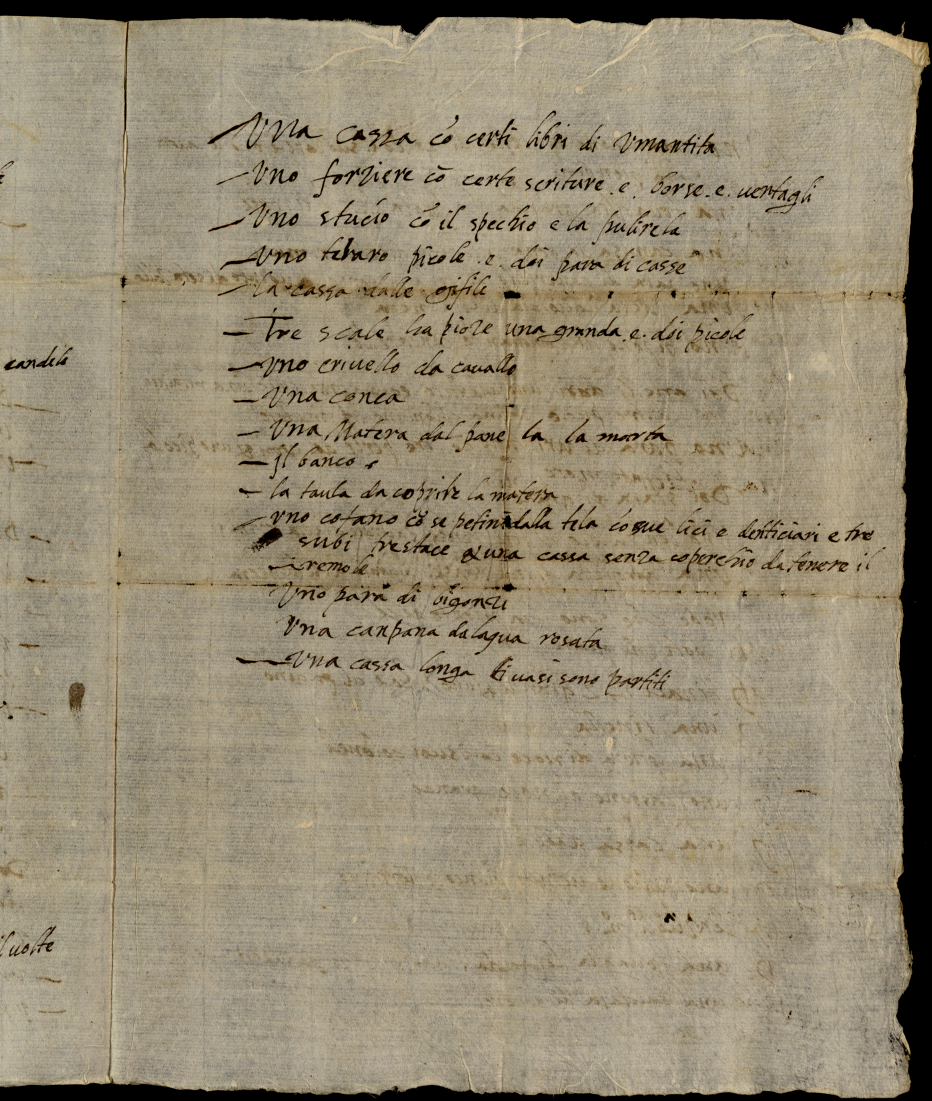 candele
il uolte
Una cassa cō certi libri di Vmantita
Vno forziere cō certe scriture . e . borse . e . uentagli
Vno stucio cō il spechio e la
Vno picole . e . doi para di casse
la cassa dalle
Tre scale una granda . e . doi picole
Vno criuello da cauallo
Vna conca
Vna Matera dal pane la la morta
Jl banco
la taula da coprire la matera
Vno cofano cō se petini dalla tela lici e denticiari e tre
subi una cassa senza coperchio da tenere il
remole
Vno para di bigonzi
Vna canpana dalaqua rosata
Vna cassa longa li uasi sono partiti